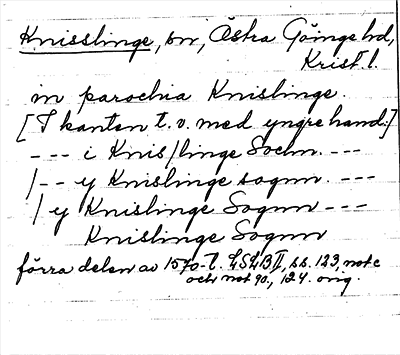 Knisslinge, sn, Östra Göinge hd,
Krist. l.
in parochia Knislinge.
[I kanten t. v. med yngre hand:]
--- i Knis/linge Sochn. ---
/-- y Knislinge sognn. ---
/ y Knislinge Sognn ---
Knislinge Sognn
förra delen av 1570-t. LSLB II, ss. 123, note
och not 90., 124. orig.